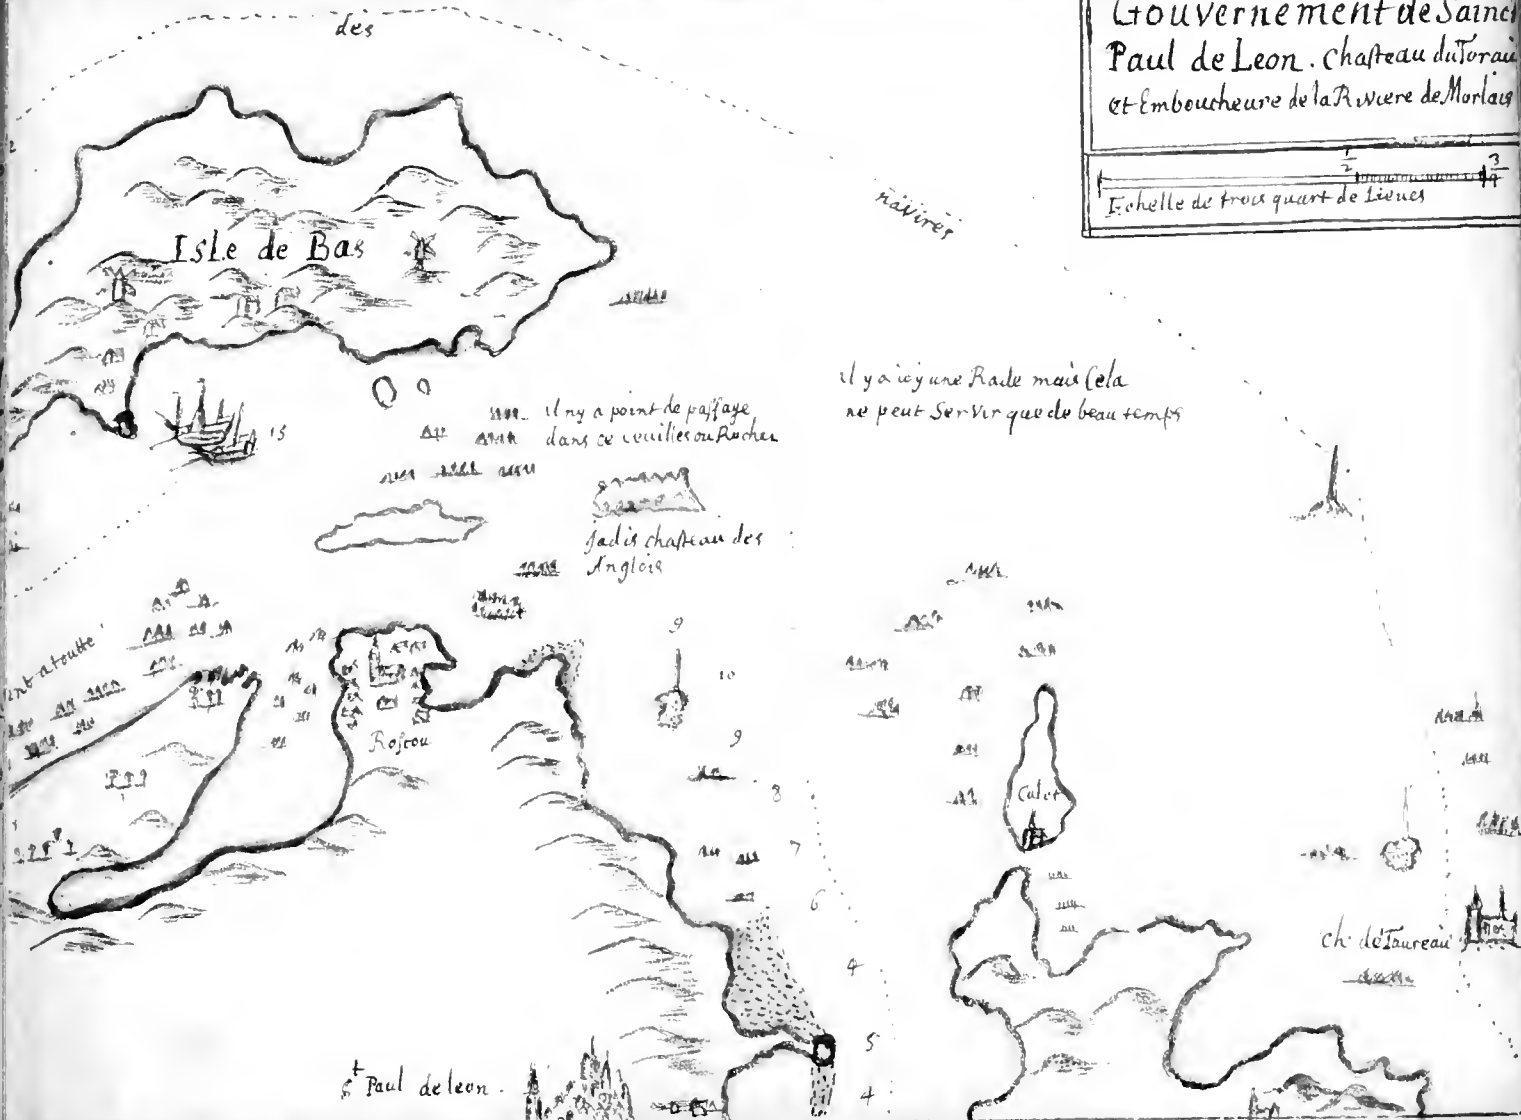 Gouvernement de Sainct
Paul de Leon. Chasteau du Torau
et Emboucheure de la Riviere de Morlais
1/2
3/4
Echelle de trois quart de Lieues
des
navires
2
Isle de Bas
15
il ny a point de passage
dans ce ou Rocher
il y a icy une Rade mais Cela
ne peut Servir que de beau temps
Jadis chasteau des
Anglois
ent a toutte
Roscou
9
10
9
8
7
6
4
5
4
Calot
ch. de Taureau
St Paul de leon.